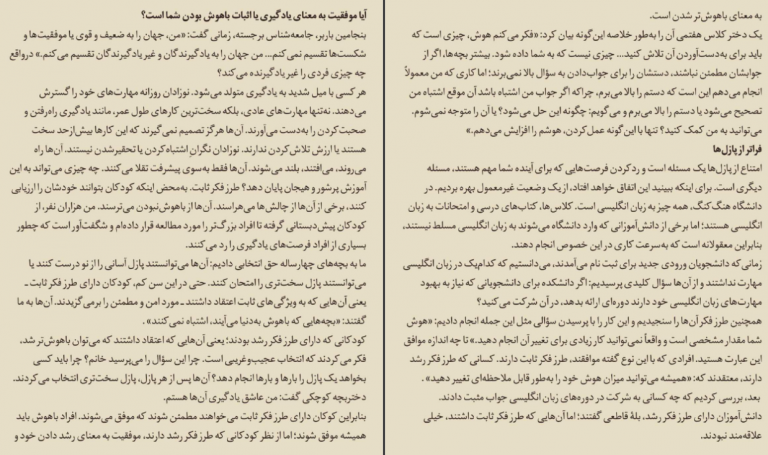 آیا موفقیت به معنای یادگیری یا اثبات باهوش بودن شما است؟
بنجامین باربر، جامعه‌شناس برجسته، زمانی گفت: «من، جهان را به ضعیف و قوی یا موفقیت‌ها و
شکست‌ها تقسیم نمی‌کنم... من جهان را به یادگیرندگان و غیر یادگیرندگان تقسیم می‌کنم.» درواقع
چه چیزی فردی را غیر یادگیرنده می‌کند؟
هر کسی با میل شدید به یادگیری متولد می‌شود. نوزادان روزانه مهارت‌های خود را گسترش
می‌دهند. نه‌تنها مهارت‌های عادی، بلکه سخت‌ترین کارهای طول عمر، مانند یادگیری راه‌رفتن و
صحبت‌کردن را به‌دست می‌آورند. آن‌ها هرگز تصمیم نمی‌گیرند که این کارها بیش‌ازحد سخت
هستند یا ارزش تلاش‌کردن ندارند. نوزادان نگران اشتباه‌کردن یا تحقیرشدن نیستند. آن‌ها راه
می‌روند، می‌افتند، بلند می‌شوند. آن‌ها فقط به‌سوی پیشرفت تقلا می‌کنند. چه چیزی می‌تواند به این
آموزش پرشور و هیجان پایان دهد؟ طرز فکر ثابت. به‌محض اینکه کودکان بتوانند خودشان را ارزیابی
کنند، برخی از آن‌ها از چالش‌ها می‌هراسند. آن‌ها از باهوش‌نبودن می‌ترسند. من هزاران نفر، از
کودکان پیش‌دبستانی گرفته تا افراد بزرگ‌تر را مورد مطالعه قرار داده‌ام و شگفت‌آور است که چطور
بسیاری از افراد فرصت‌های یادگیری را رد می‌کنند.
ما به بچه‌های چهارساله حق انتخابی دادیم: آن‌ها می‌توانستند پازل آسانی را از نو درست کنند یا
می‌توانستند پازل سخت‌تری را امتحان کنند. حتی در این سن کم، کودکان دارای طرز فکر ثابت ـ
یعنی آن‌هایی که به ویژگی‌های ثابت اعتقاد داشتند ـ مورد امن و مطمئن را برمی‌گزیدند. آن‌ها به ما
گفتند: «بچه‌هایی که باهوش به‌دنیا می‌آیند، اشتباه نمی‌کنند» .
کودکانی که دارای طرز فکر رشد بودند؛ یعنی آن‌هایی که اعتقاد داشتند که می‌توان باهوش‌تر شد،
فکر می‌کردند که انتخاب عجیب‌وغریبی است. چرا این سؤال را می‌پرسید خانم؟ چرا باید کسی
بخواهد یک پازل را بارها و بارها انجام دهد؟ آن‌ها پس از هر پازل، پازل سخت‌تری انتخاب می‌کردند.
دختربچه کوچکی گفت: من عاشق یادگیری آن‌ها هستم.
بنابراین کوکان دارای طرز فکر ثابت می‌خواهند مطمئن شوند که موفق می‌شوند. افراد باهوش باید
همیشه موفق شوند؛ اما از نظر کودکانی که طرز فکر رشد دارند، موفقیت به معنای رشد دادن خود و
به معنای باهوش‌تر شدن است.
یک دختر کلاس هفتمی آن را به‌طور خلاصه این‌گونه بیان کرد: «فکر می‌کنم هوش، چیزی است که
باید برای به‌دست‌آوردن آن تلاش کنید... چیزی نیست که به شما داده شود. بیشتر بچه‌ها، اگر از
جوابشان مطمئن نباشند، دستشان را برای جواب‌دادن به سؤال بالا نمی‌برند؛ اما کاری که من معمولاً
انجام می‌دهم این است که دستم را بالا می‌برم، چراکه اگر جواب من اشتباه باشد آن موقع اشتباه من
تصحیح می‌شود یا دستم را بالا می‌برم و می‌گویم: چگونه این حل می‌شود؟ یا آن را متوجه نمی‌شوم.
می‌توانید به من کمک کنید؟ تنها با این‌گونه عمل‌کردن، هوشم را افزایش می‌دهم.»
فراتر از پازل‌ها
امتناع از پازل‌ها یک مسئله است و رد کردن فرصت‌هایی که برای آینده شما مهم هستند، مسئله
دیگری است. برای اینکه ببینید این اتفاق خواهد افتاد، از یک وضعیت غیرمعمول بهره بردیم. در
دانشگاه هنگ‌کنگ، همه چیز به زبان انگلیسی است. کلاس‌ها، کتاب‌های درسی و امتحانات به زبان
انگلیسی هستند؛ اما برخی از دانش‌آموزانی که وارد دانشگاه می‌شوند به زبان انگلیسی مسلط نیستند،
بنابراین معقولانه است که به‌سرعت کاری در این خصوص انجام دهند.
زمانی که دانشجویان ورودی جدید برای ثبت نام می‌آمدند، می‌دانستیم که کدام‌یک در زبان انگلیسی
مهارت نداشتند و از آن‌ها سؤال کلیدی پرسیدیم: اگر دانشکده برای دانشجویانی که نیاز به بهبود
مهارت‌های زبان انگلیسی خود دارند دوره‌ای ارائه بدهد، در آن شرکت می‌کنید؟
همچنین طرز فکر آن‌ها را سنجیدیم و این کار را با پرسیدن سؤالی مثل این جمله انجام دادیم: «هوش
شما مقدار مشخصی است و واقعاً نمی‌توانید کار زیادی برای تغییر آن انجام دهید.» تا چه اندازه موافق
این عبارت هستید. افرادی که با این نوع گفته موافقتند، طرز فکر ثابت دارند. کسانی که طرز فکر رشد
دارند، معتقدند که: «همیشه می‌توانید میزان هوش خود را به‌طور قابل ملاحظه‌ای تغییر دهید» .
بعد، بررسی کردیم که چه کسانی به شرکت در دوره‌های زبان انگلیسی جواب مثبت دادند.
دانش‌آموزان دارای طرز فکر رشد، بلهٔ قاطعی گفتند؛ اما آن‌هایی که طرز فکر ثابت داشتند، خیلی
علاقه‌مند نبودند.